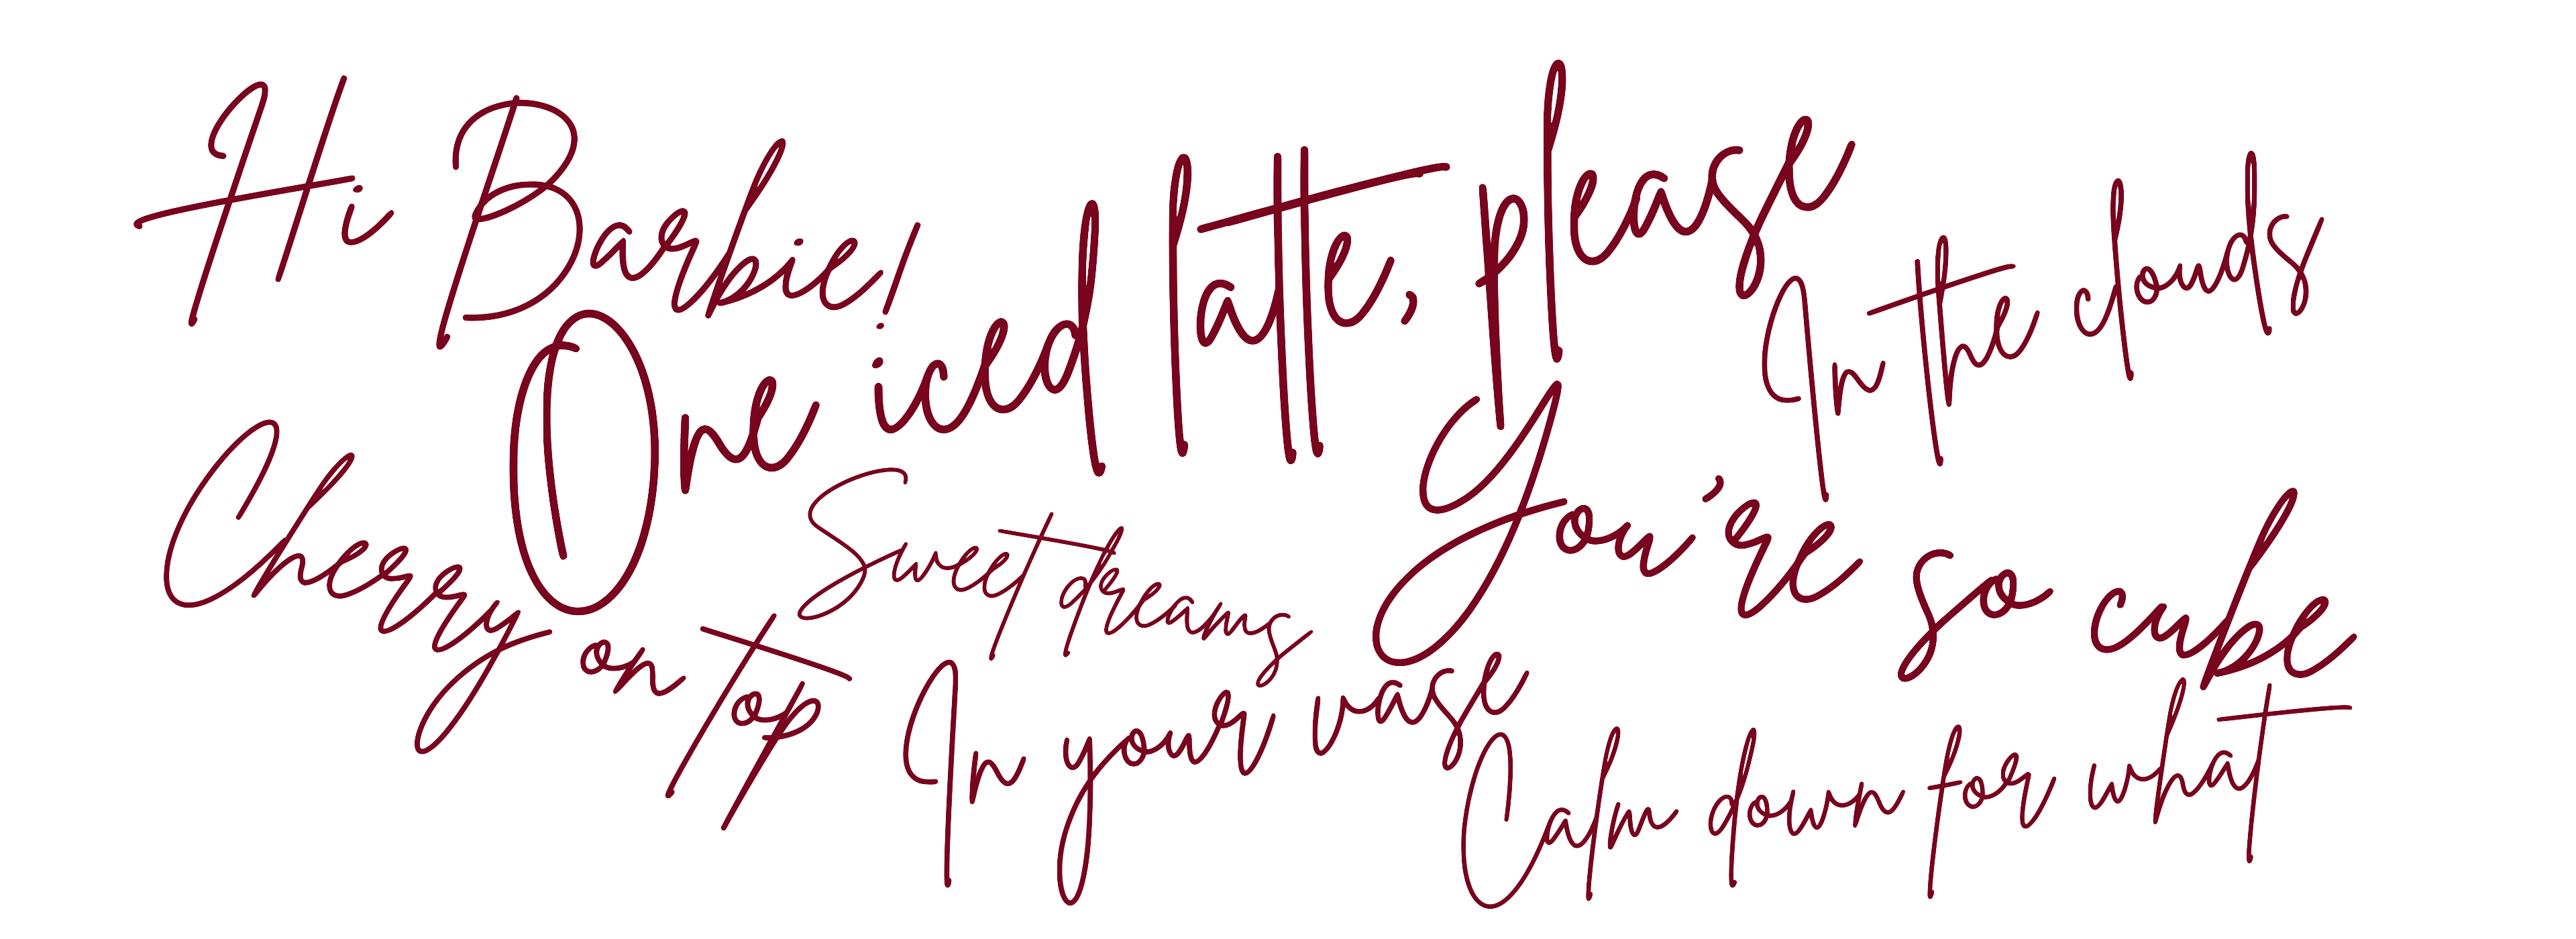 Hi Barbie!
One iced latte, please
In the clouds
Cherry on top
Sweet dreams
You're so cube
In your vase
Calm down for what